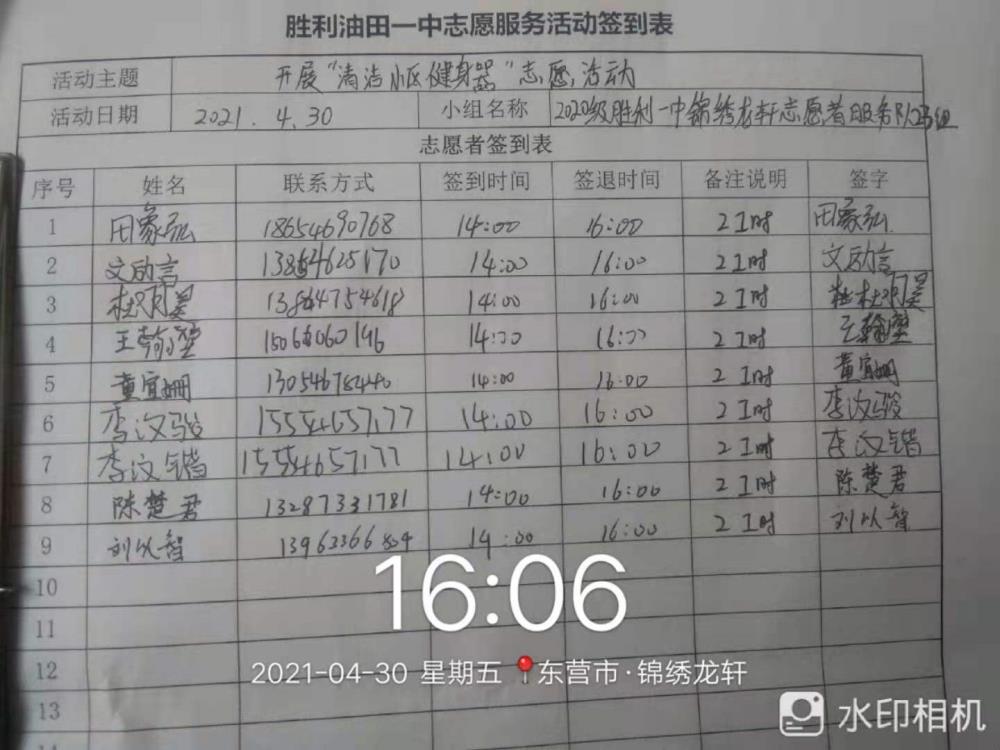 胜利油田一中志愿服务活动签到表
活动主题 开展“清洁小区健身器”志愿活动
活动日期 2021.4.30 小组名称 2020级胜利一中锦绣龙轩志愿者服务队
志愿者签到表
序号 姓名 联系方式 签到时间 签退时间 备注说明 签字
1 田家弘 18654690768 14:00 16:00 2工时 田家弘
2 文励言 14:00 16:00 2工时 文励言
3 14:00 16:00 2工时
4 14:00 16:00 2工时
5 董宜姗 14:00 16:00 2工时 董宜姗
6 李汶骏 15554657177 14:00 16:00 2工时 李汶骏
7 李汶锴 15554657177 14:00 16:00 2工时 李汶锴
8 陈楚君 13287331781 14:00 16:00 2工时 陈楚君
9 刘以智 14:00 16:00 2工时 刘以智
10
11
12
13
16:06
2021-04-30 星期五 东营市·锦绣龙轩
水印相机